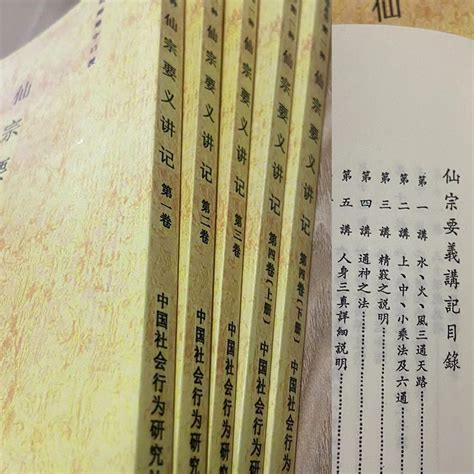 仙宗要
仙宗要义讲记 第一卷 中国社会行为研究
仙宗要义讲记 第二卷 中国社会行为研究
仙宗要义讲记 第三卷 中国社会行为研究
仙宗要义讲记 第四卷(上册) 中国社会行为研究
仙宗要义讲记 第四卷(下册) 中国社会行为研究
仙
仙宗要義講記目錄
第一講 水、火、風三通天路
第二講 上、中、小乘法及六通
第三講 精竅之説明
第四講 通神之法
第五講 人身三真詳細説明